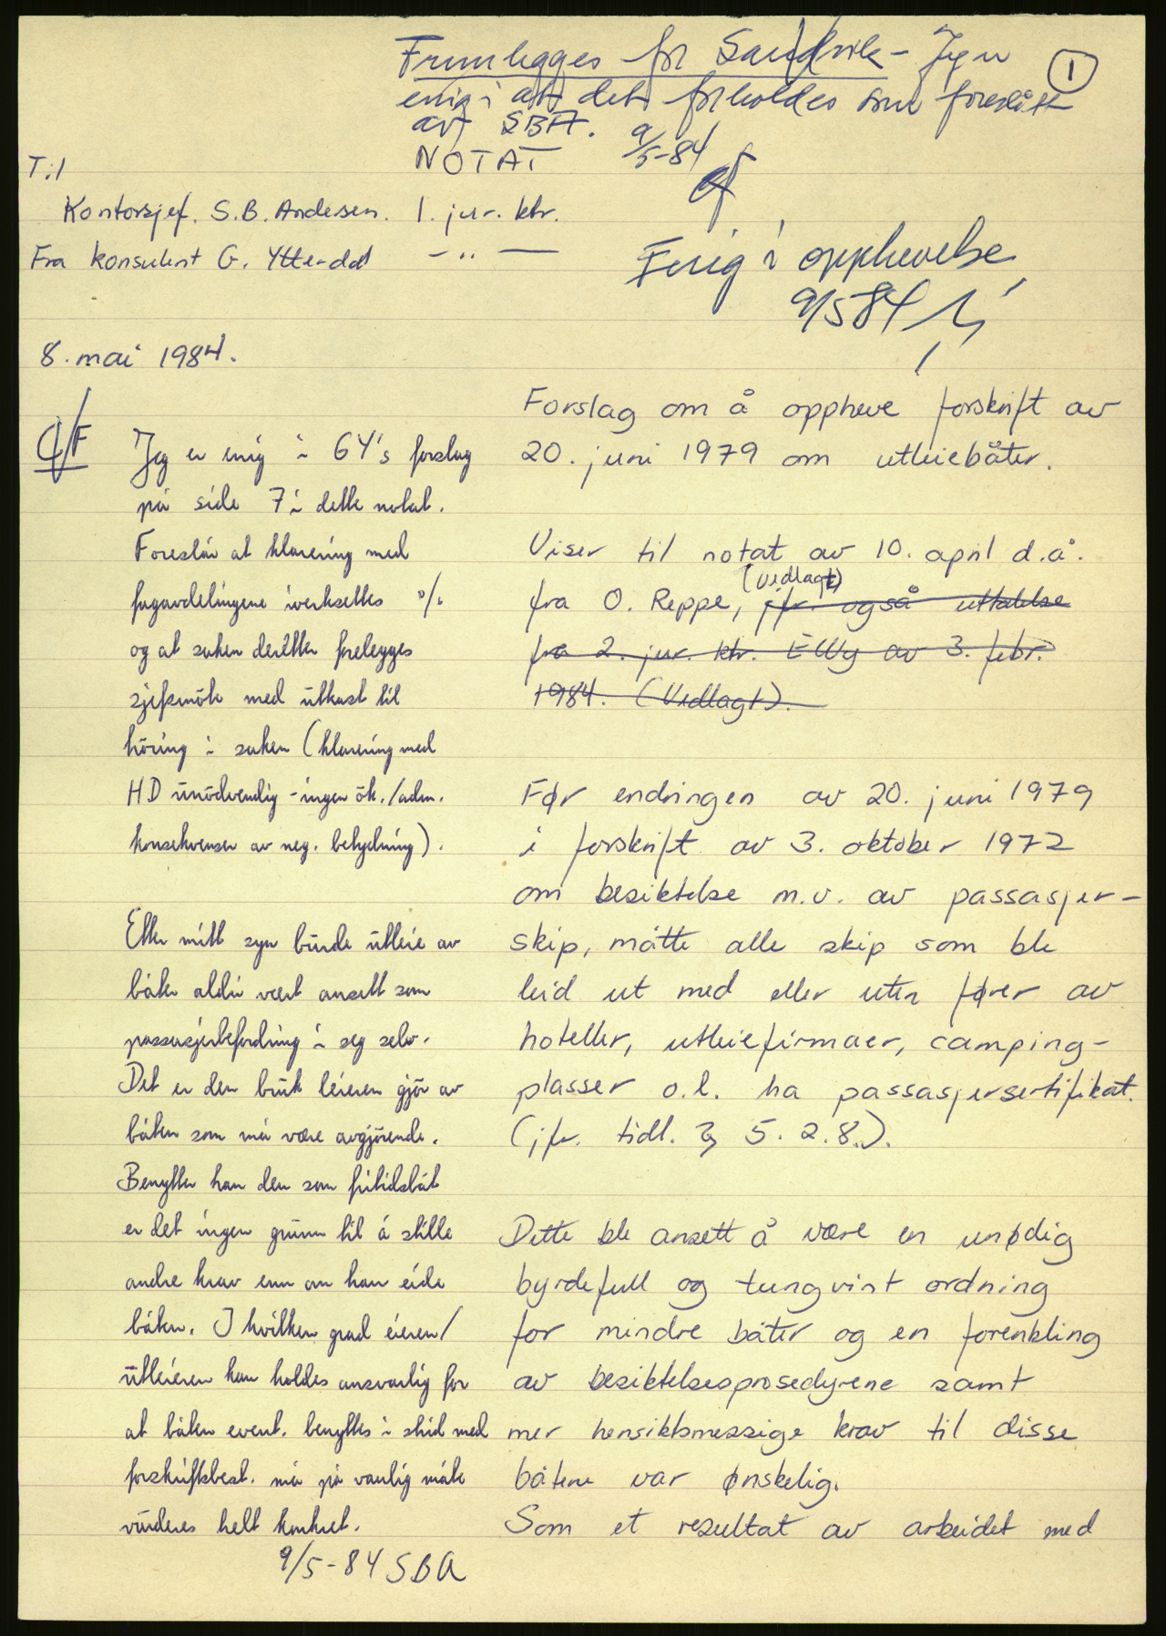 Fremlegges for Sandvik - Jeg er
enig i at det forholdes som foreslått
av SBA.
9/5-84
1
NOTAT
Til
Kontorsjef. S.B. Andersen. 1. jur. ktr.
Fra konsulent G. Ytterdal - " -
Enig i opphevelse
9/5 84
8. mai 1984.
Forslag om å oppheve forskrift av
20. juni 1979 om utleiebåter.
Viser til notat av 10. april d.å.
(Vedlagt)
fra O. Reppe, jfr. også uttalelse
fra 2. jur. ktr. Elly av 3. febr.
1984. (Vedlagt).
Før endringen av 20. juni 1979
i forskrift av 3. oktober 1972
om besiktelse m.v. av passasjer-
skip, måtte alle skip som ble
leid ut med eller uten fører av
hoteller, utleiefirmaer, camping-
plasser o.l. ha passasjersertifikat.
(jfr. tidl. § 5.2.8.).
Dette ble ansett å være en unødig
byrdefull og tungvint ordning
for mindre båter og en forenkling
av besiktelsesprosedyrene samt
mer hensiktsmessige krav til disse
båtene var ønskelig.
Som et resultat av arbeidet med
Jeg er enig i GY's forslag
på side 7 i dette notat.
Foreslår at klarering med
fagavdelingene iverksettes %
og at saken deretter forelegges
sjefsmöte med utkast til
höring i saken (klarering med
HD unödvendig - ingen ök./adm.
konsekvenser av neg. betydning).
Etter mitt syn burde utleie av
båter aldri vært ansett som
passasjerbefordring i seg selv.
Det er den bruk leieren gjör av
båten som må være avgjörende.
Benytter han den som fritidsbåt
er det ingen grunn til å stille
andre krav enn om han eide
båten. I hvilken grad eieren/
utleieren kan holdes ansvarlig for
at båten event. benyttes i strid med
forskriftsbest. må på vanlig måte
vurderes helt konkret.
9/5-84 SBA